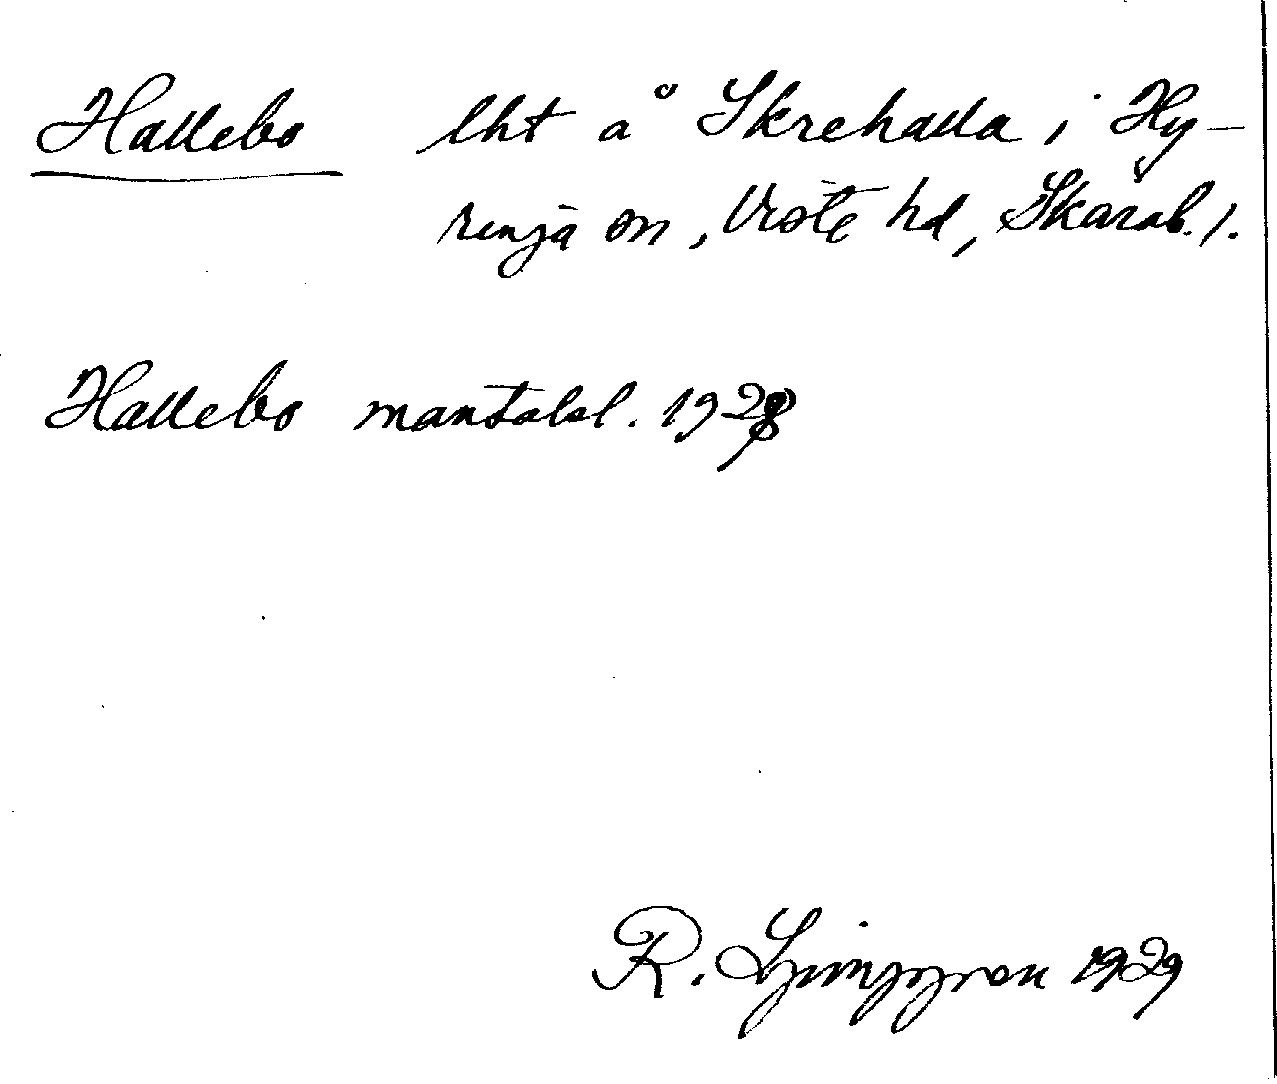 Hallebo lht å Skrehalla i Hy-
renja sn, Viste hd, Skarab. l.
Hallebo mantalsl. 1928
R. Ljunggren 1929